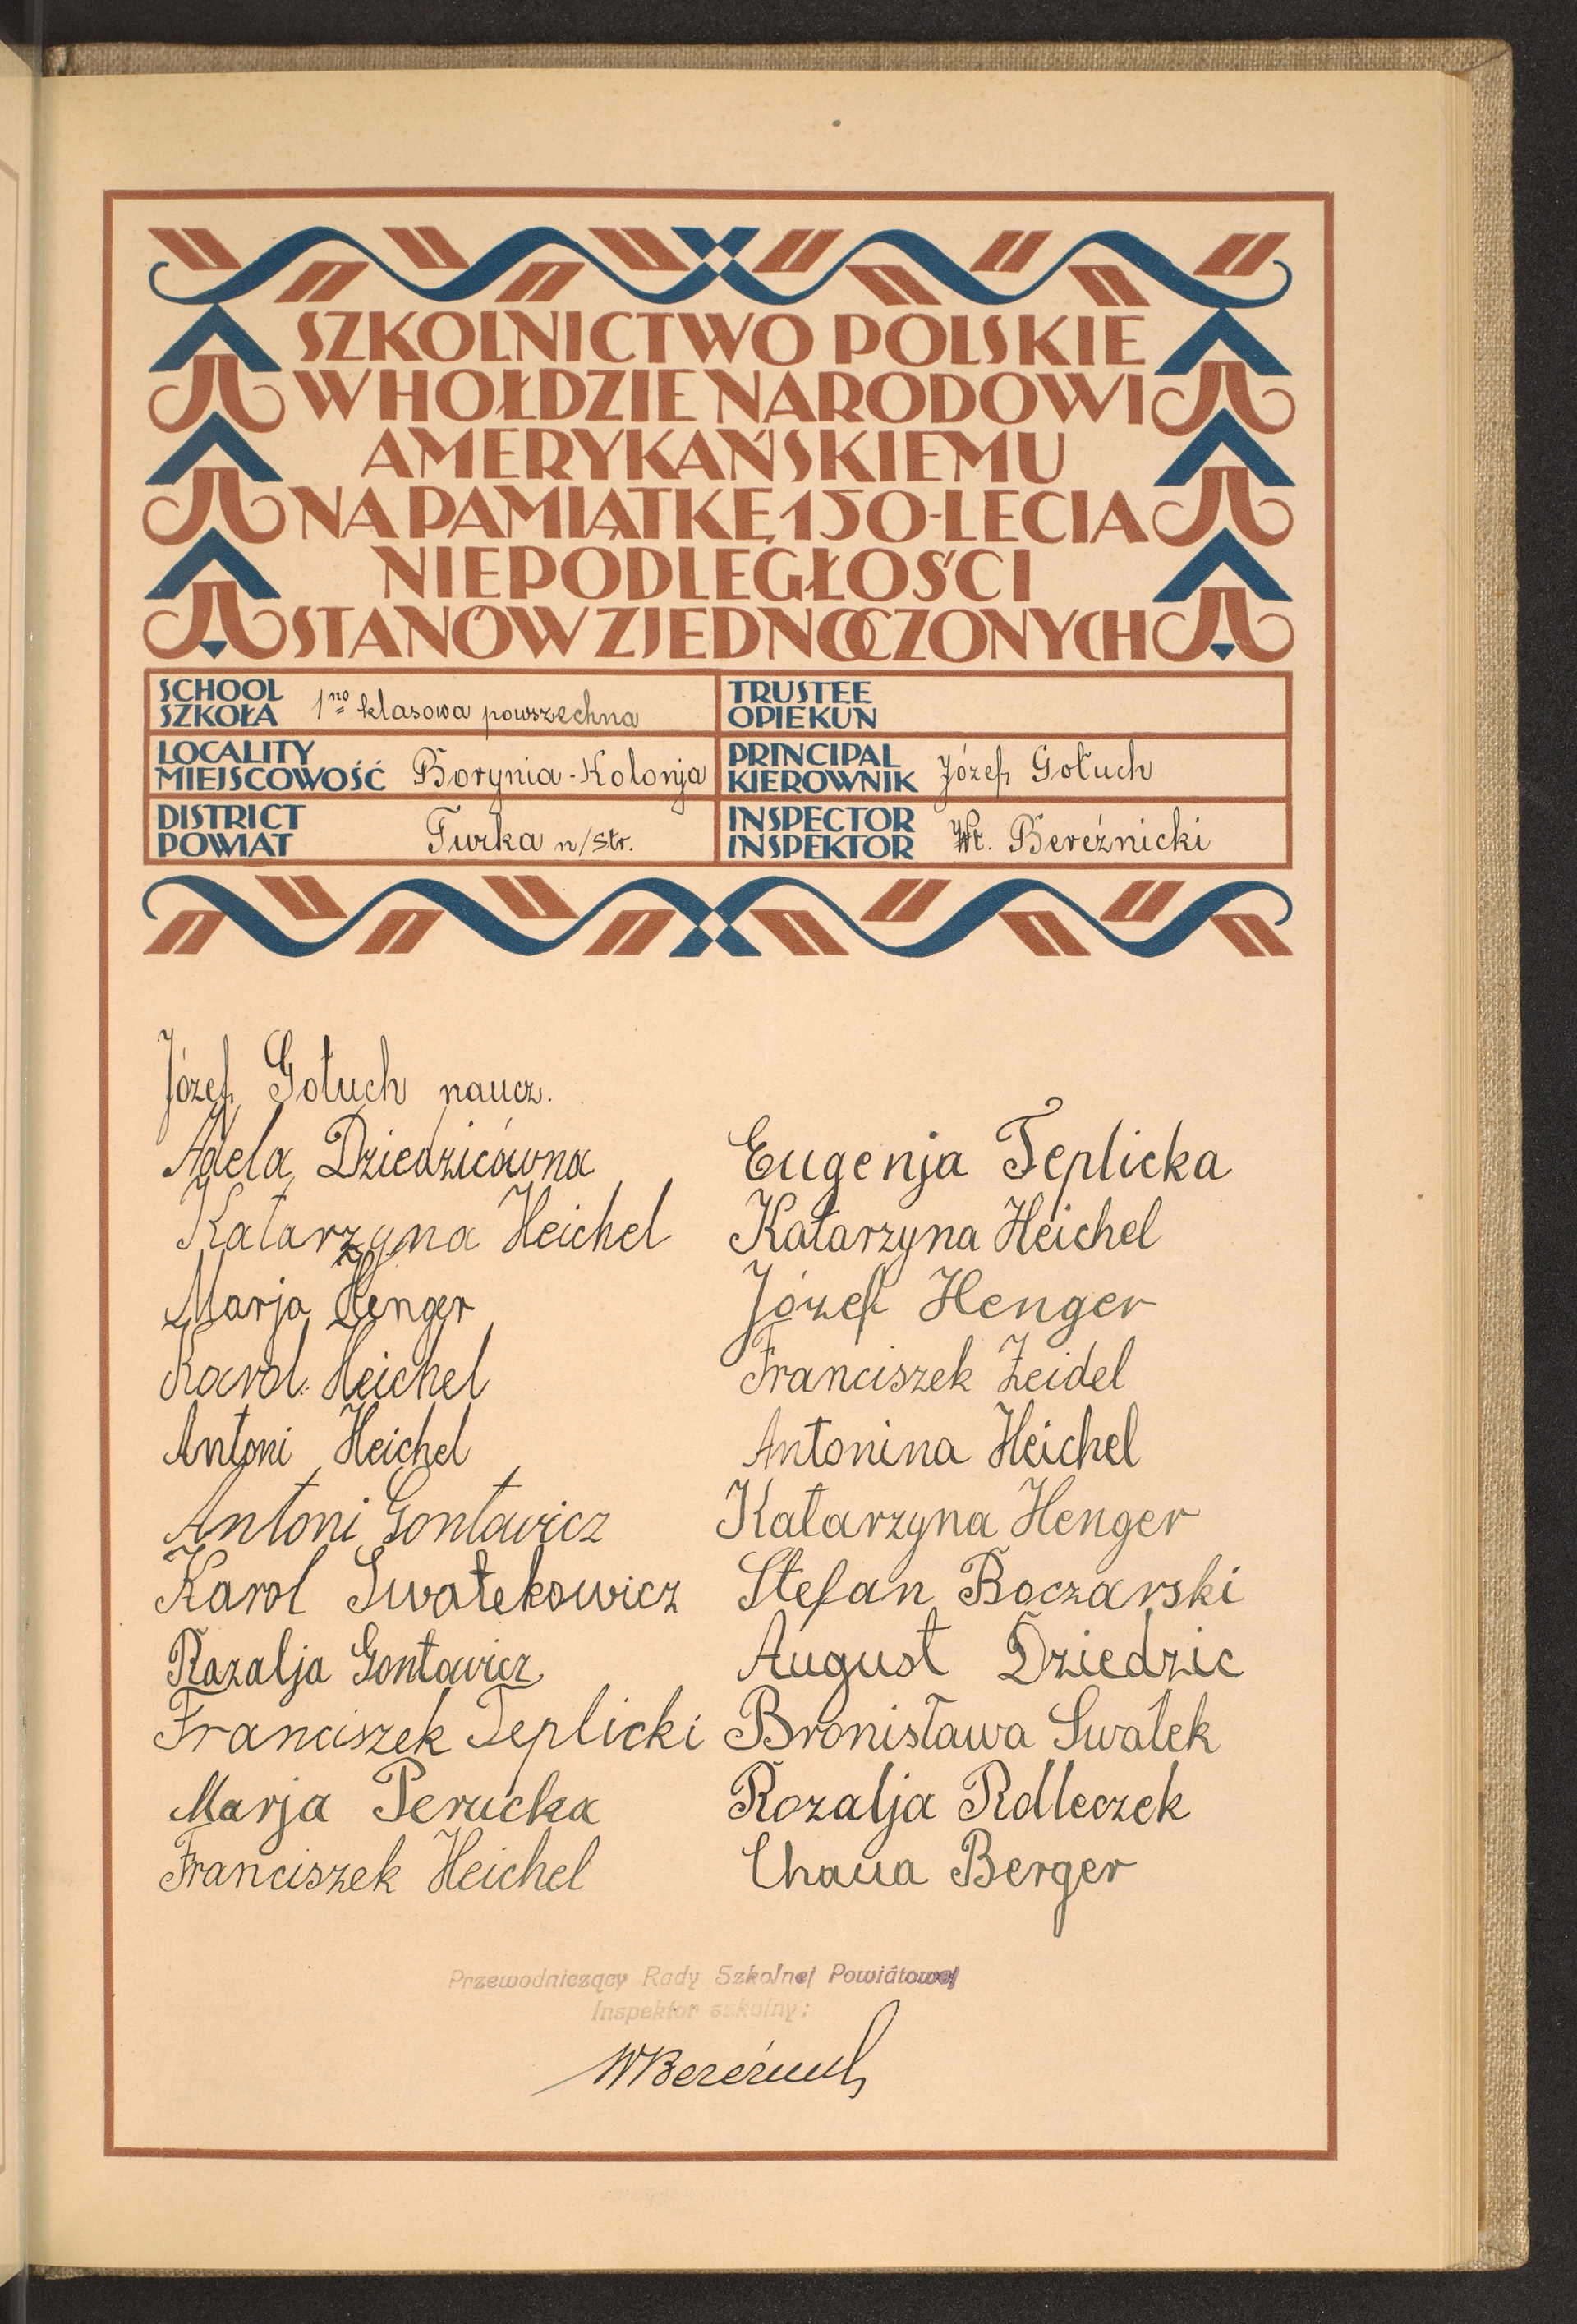 SZKOLNICTWO POLSKIE
W HOŁDZIE NARODOWI
AMERYKAŃSKIEMU
NA PAMIĄTKĘ 150-LECIA
NIEPODLEGŁOŚCI
STANÓW ZJEDNOCZONYCH
SCHOOL
SZKOŁA
1no klasowa powszechna
TRUSTEE
OPIEKUN
LOCALITY
MIEJSCOWOŚĆ
Borynia-Kolonja
PRINCIPAL
KIEROWNIK
Józef Gołuch
DISTRICT
POWIAT
Turka n/Str.
INSPECTOR
INSPEKTOR
Wł. Bereźnicki
Józef Gołuch naucz.
Adela Dziedzicówna
Katarzyna Heichel
Marja Henger
Karol Heichel
Antoni Heichel
Antoni Gontowicz
Karol Swatekowicz
Razalja Gontowicz
Franciszek Teplicki
Marja Perucka
Franciszek Heichel
Eugenja Teplicka
Katarzyna Heichel
Józef Henger
Franciszek Zeidel
Antonina Heichel
Katarzyna Henger
Stefan Boczarski
August Dziedzic
Bronisława Swatek
Rozalja Rolleczek
Chaua Berger
Przewodniczący Rady Szkolnej Powiatowej
Inspektor szkolny: